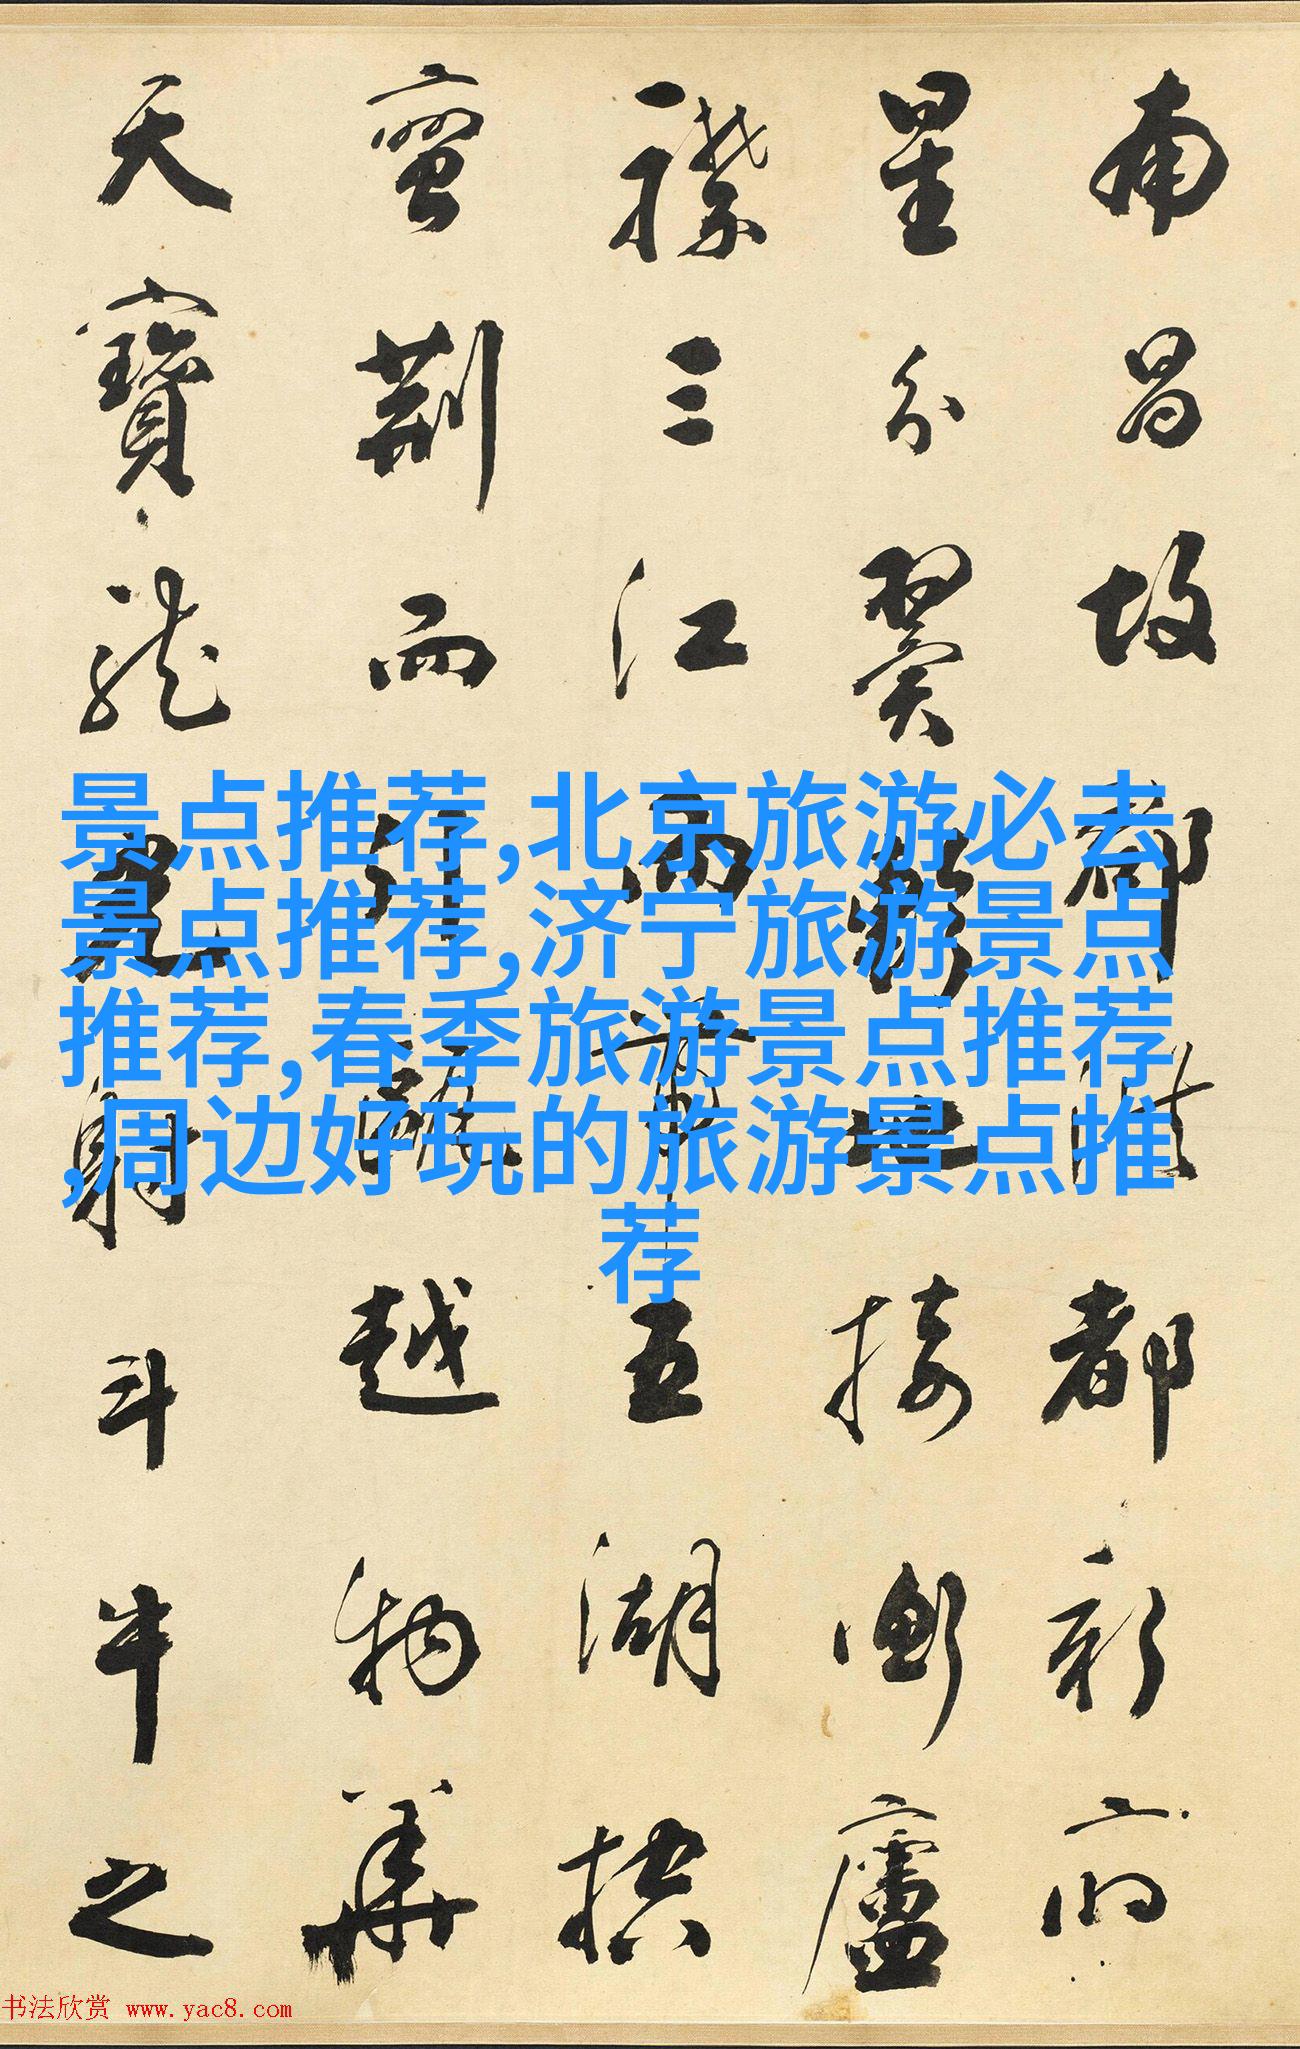 南昌故都洪都新府
星分翼軫地接衡廬
襟三江而帶五湖控
蠻荊而引甌越物華
天寶龍光射斗牛之
景点推荐,北京旅游必去
景点推荐,济宁旅游景点
推荐,春季旅游景点推荐
,周边好玩的旅游景点推
荐
书法欣赏 www.yac8.com